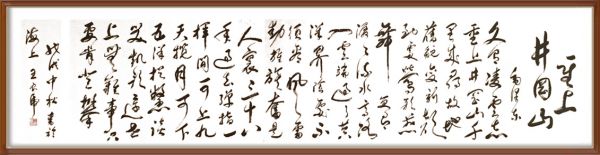 重上
井冈山
毛泽东
久有凌云志
重上井冈山千
里来寻故地
旧貌变新颜
到处莺歌燕
舞更有
潺潺流水高路
入云端过了黄
洋界险处不
须看风雷
动旌旗奋是
人寰三十八
年过去弹指一
挥间可上九
天揽月可下
五洋捉鳖谈
笑凯歌还世
上无难事只
要肯登攀
戊戌中秋书于
海上王